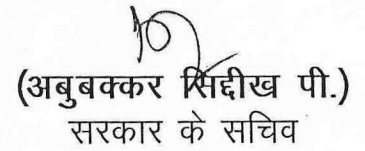 (अबुबक्कर सिद्दीख पी.)
सरकार के सचिव